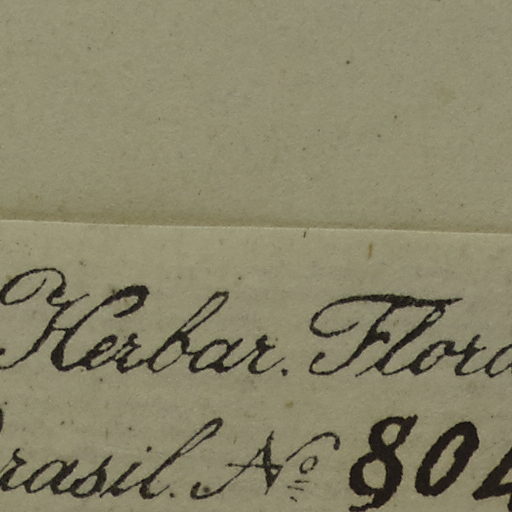 Herbar. Flora
Brasil. Nº 804